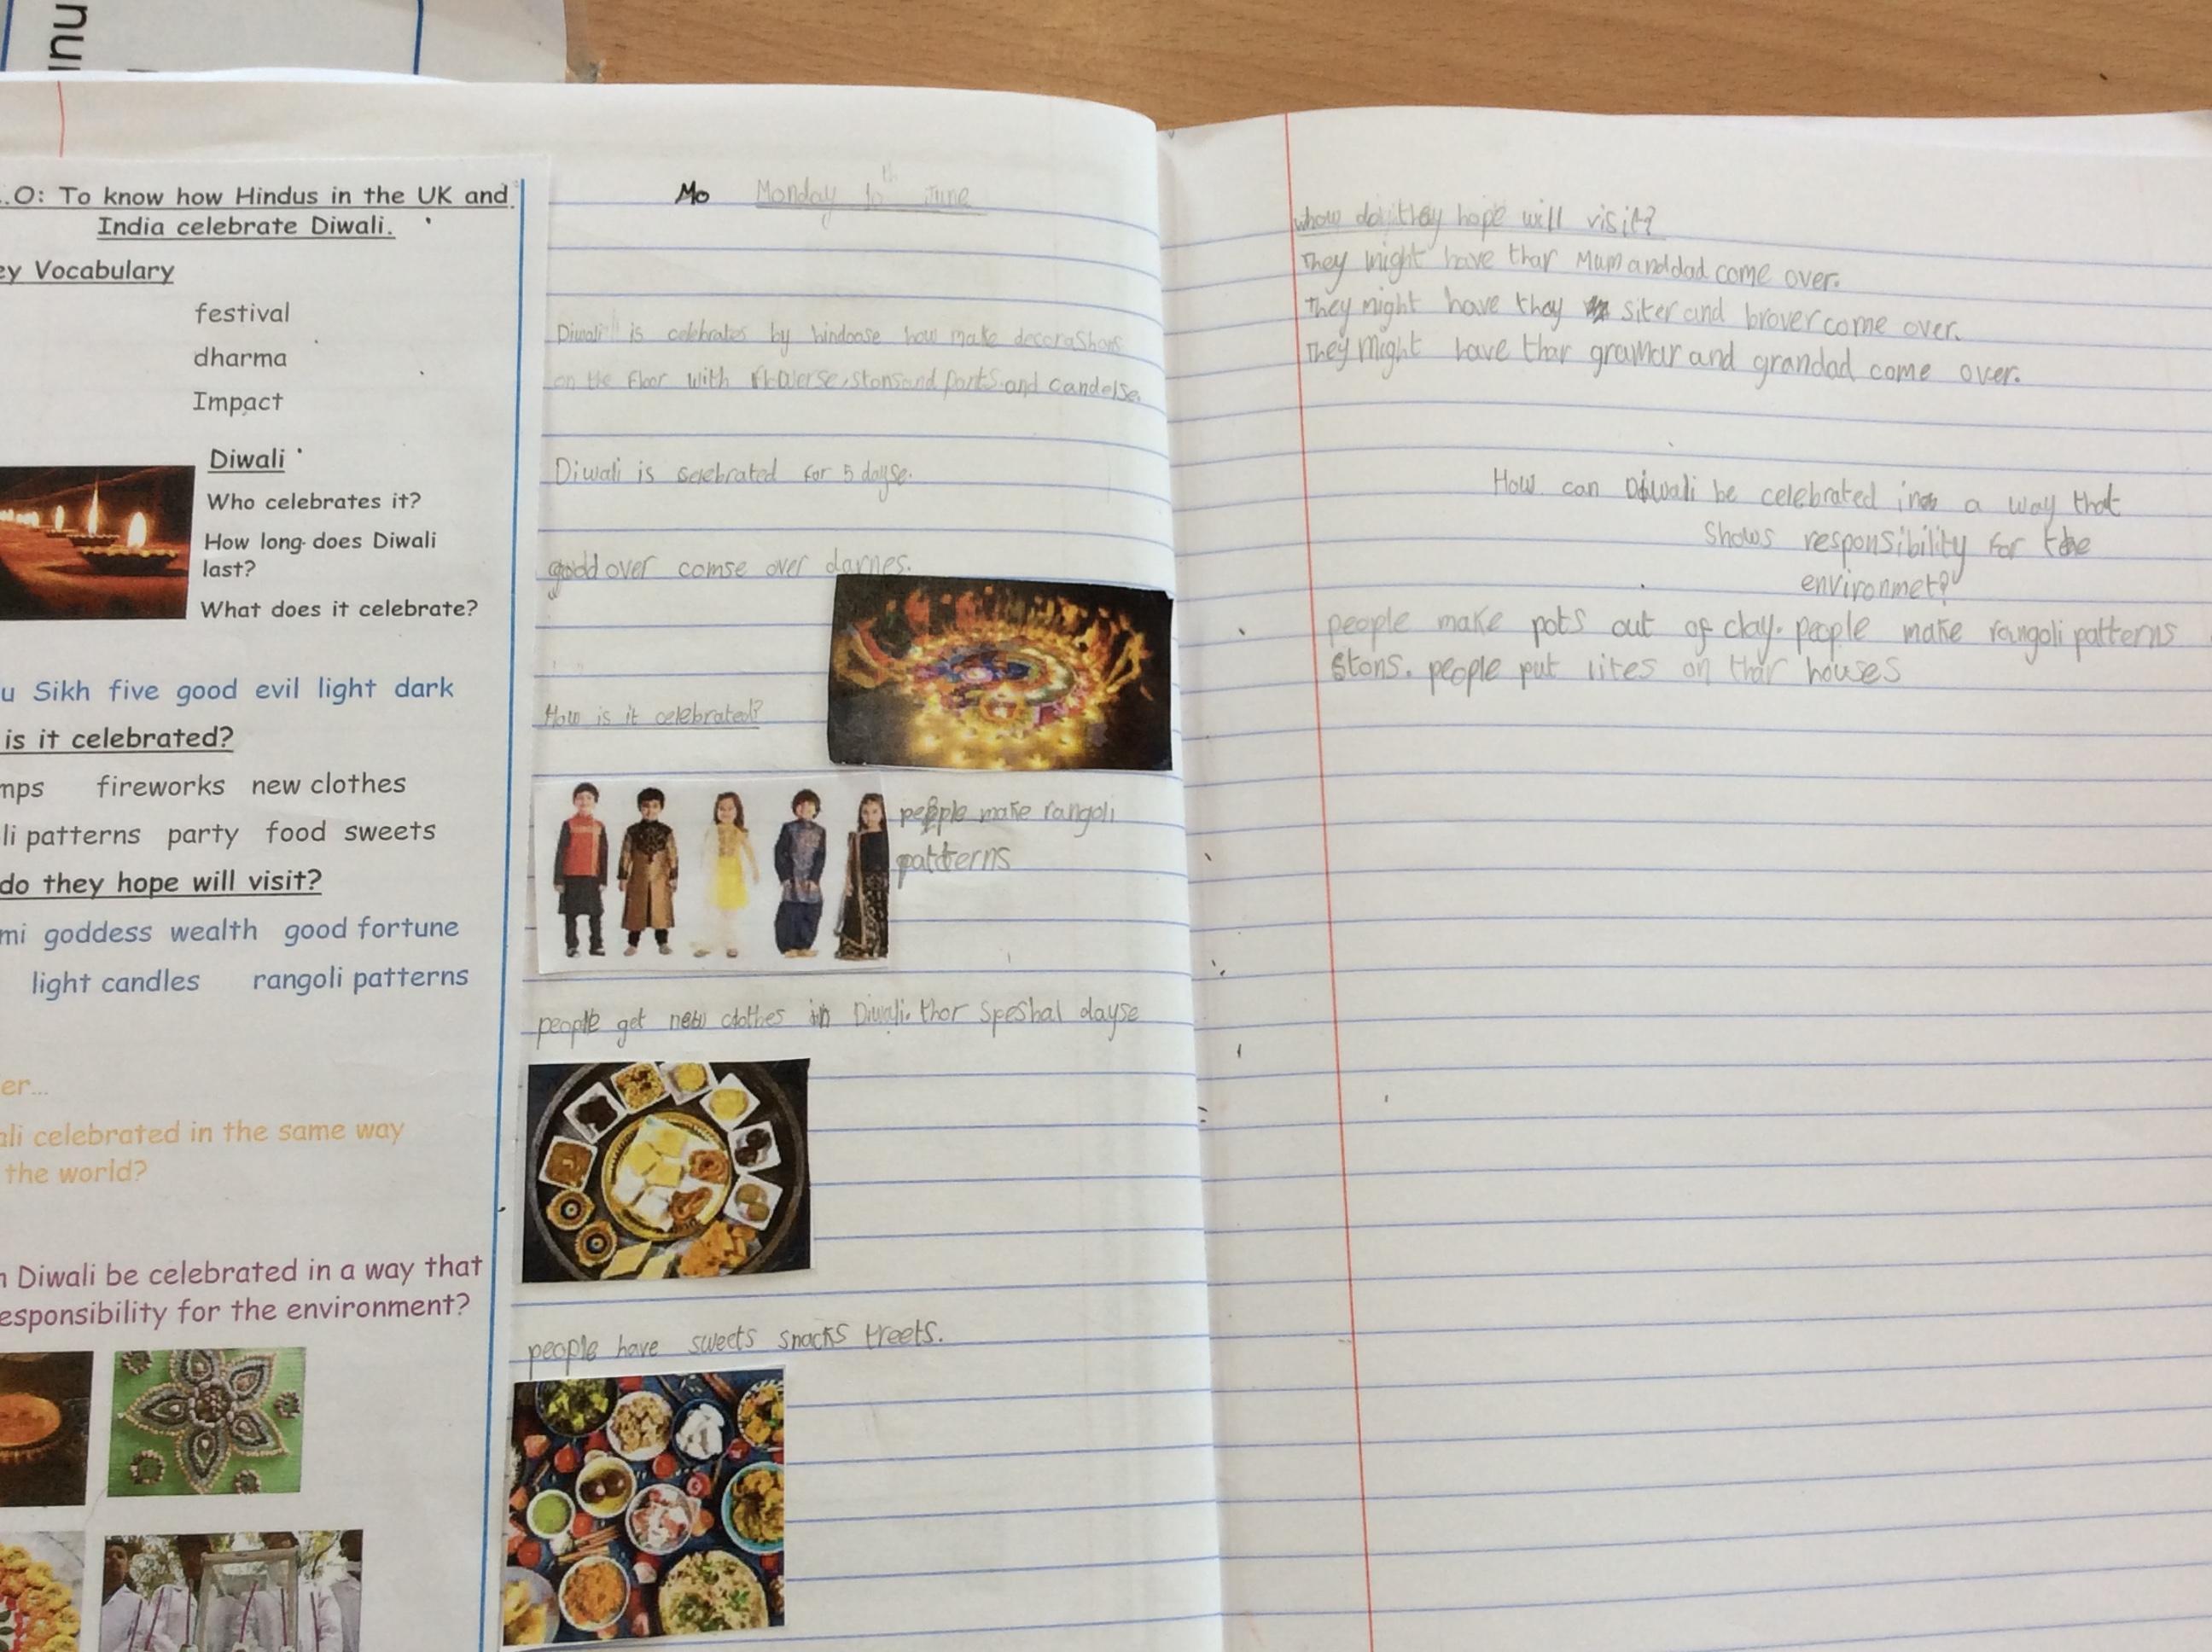 nu
.O: To know how Hindus in the UK and
India celebrate Diwali.
ey Vocabulary
festival
dharma
Impact
Diwali
Who celebrates it?
How long does Diwali
last?
What does it celebrate?
u Sikh five good evil light dark
is it celebrated?
mps fireworks new clothes
li patterns party food sweets
do they hope will visit?
mi goddess wealth good fortune
light candles rangoli patterns
er...
ali celebrated in the same way
the world?
n Diwali be celebrated in a way that
esponsibility for the environment?
Mo Monday 10th June
Diwali is celebrates by hindoose how make decorashons
on the floor with flowerse, stons and paints and candelse.
Diwali is selebrated for 5 dayse.
good over comse over darnes.
How is it celebrated?
people make rangoli
patterns
people get new clothes in Diwali. thor speshal dayse
people have sweets snacks treets.
whow do they hope will visit?
They might have thar Mum and dad come over.
They might have thay siter and brover come over.
They might have thar gramar and grandad come over.
How can Diwali be celebrated in a way that
Shows responsibility for the
environmet?
people make pots out of clay. people make rangoli patterns
stons. people put lites on thar houses